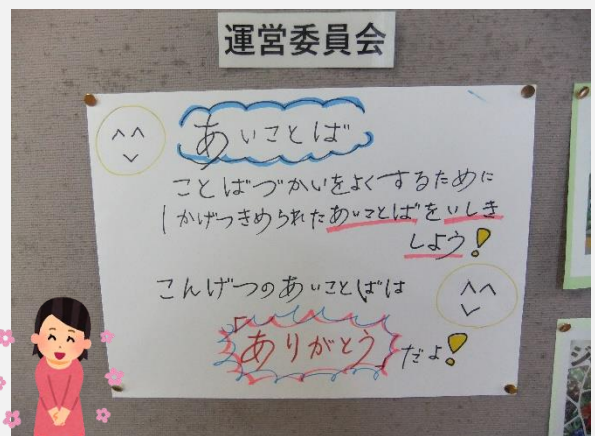 運営委員会
あいことば
ことばづかいをよくするために
1かげつきめられたあいことばをいしき
しよう!
こんげつのあいことばは
「ありがとう」だよ!